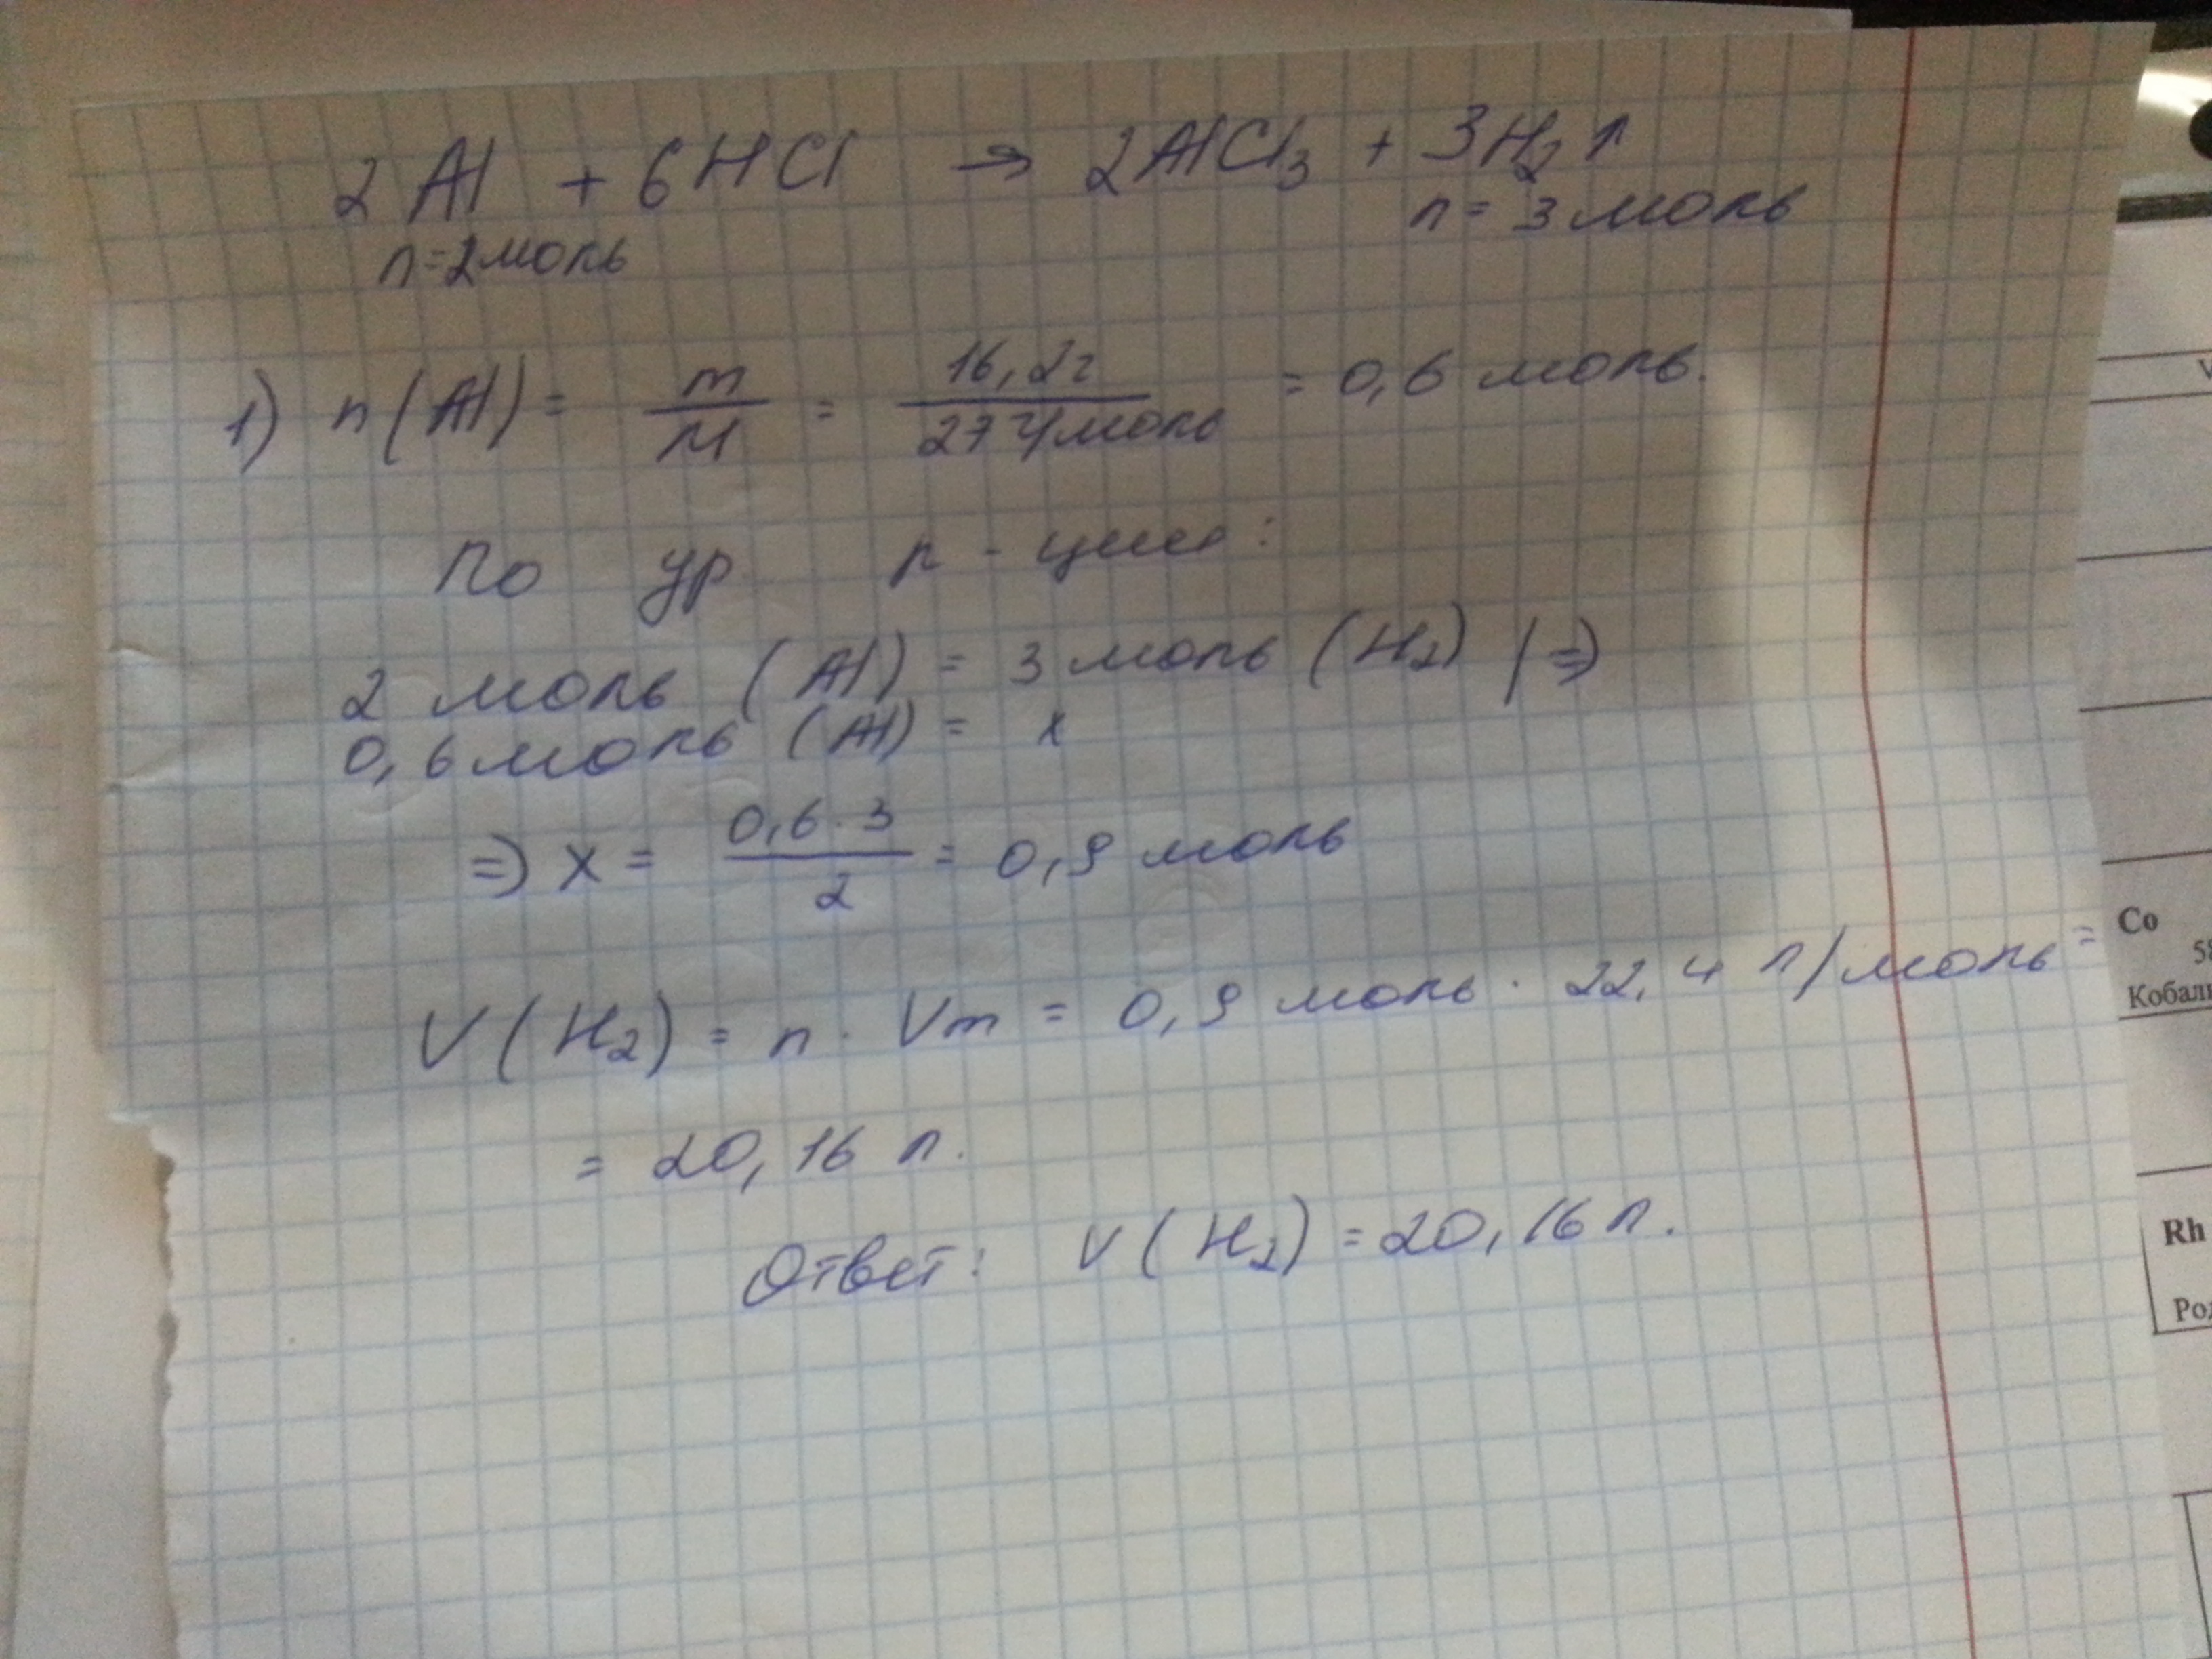 2Al + 6HCl → 2AlCl₃ + 3H₂↑
n=2моль n= 3 моль
1) n(Al) = m/M = 16,2г/27 г/моль = 0,6 моль.
По ур р-ции:
2 моль (Al) = 3 моль (H₂) | ⇒
0,6 моль (Al) = x
⇒ x = 0,6·3/2 = 0,9 моль
V(H₂) = n · Vm = 0,9 моль · 22,4 л/моль =
= 20,16 л.
Ответ: V(H₂) = 20,16 л.
Co
58
Rh